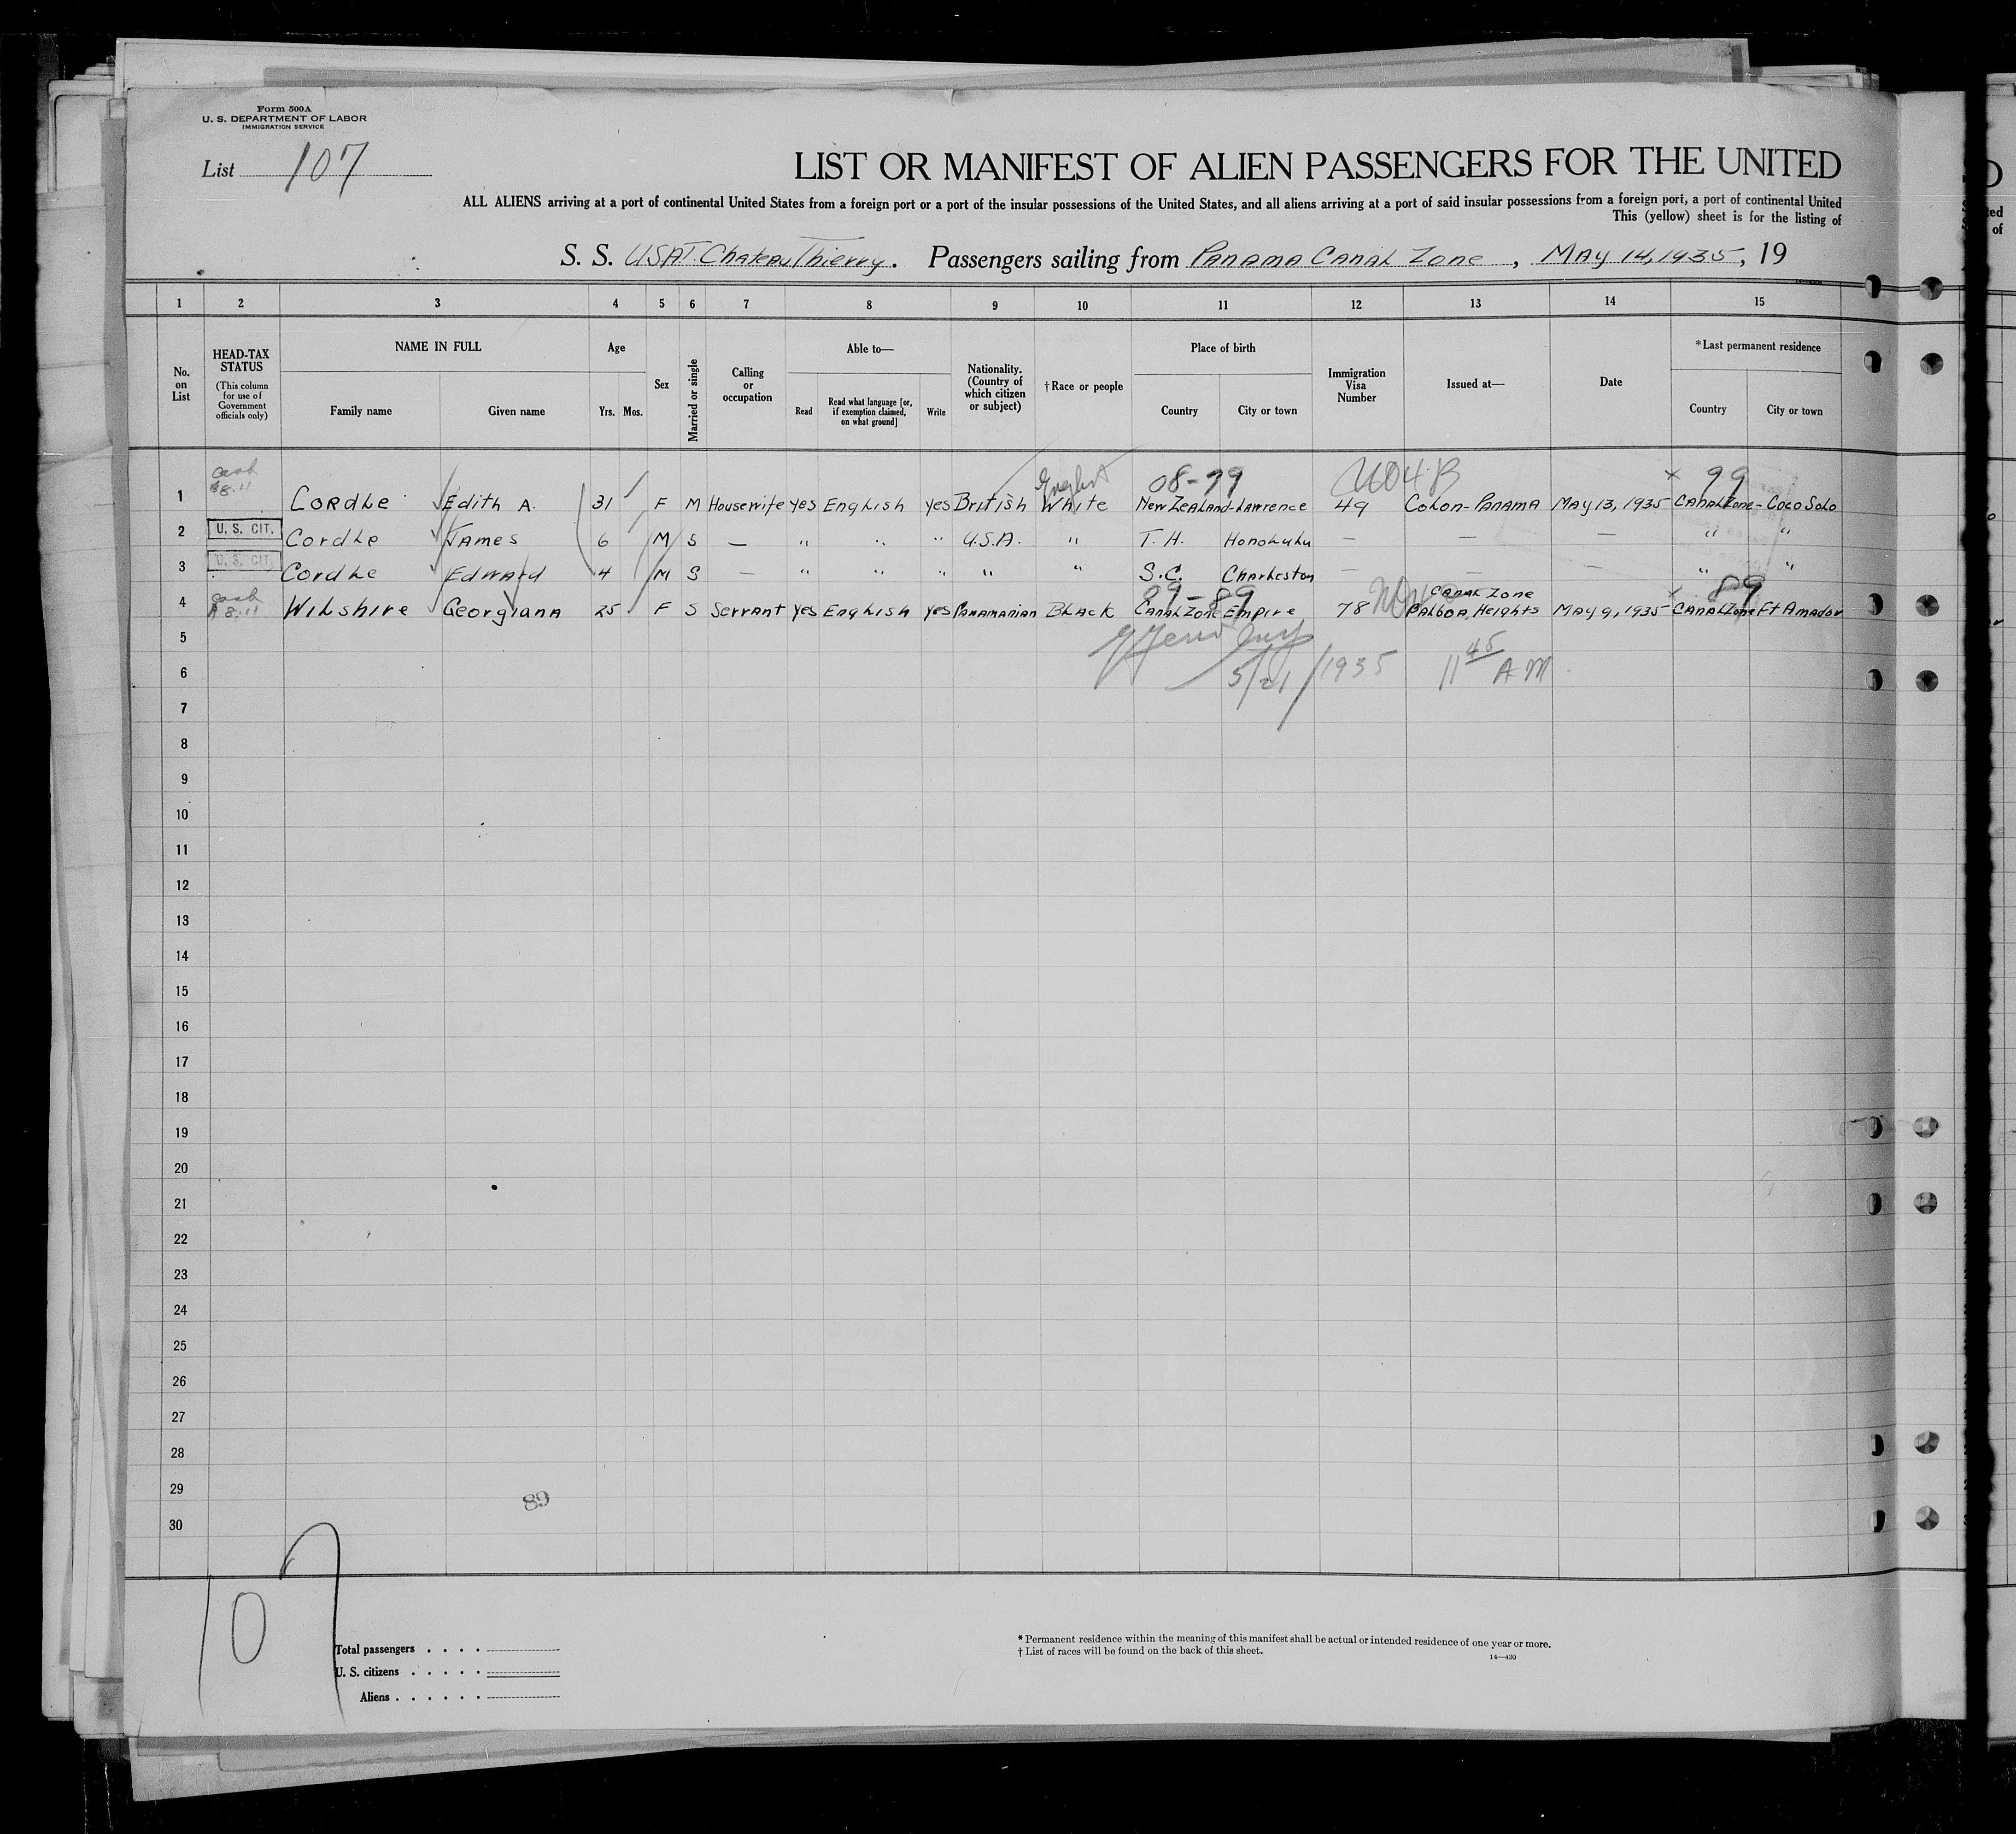 Form 500A
U. S. DEPARTMENT OF LABOR
IMMIGRATION SERVICE
List 107
LIST OR MANIFEST OF ALIEN PASSENGERS FOR THE UNITED
ALL ALIENS arriving at a port of continental United States from a foreign port or a port of the insular possessions of the United States, and all aliens arriving at a port of said insular possessions from a foreign port, a port of continental United
This (yellow) sheet is for the listing of
S. S. USAT. Chateau Thierry. Passengers sailing from Panama Canal Zone, May 14, 1935, 19
1 2 3 4 5 6 7 8 9 10 11 12 13 14 15
No. on List
HEAD-TAX STATUS (This column for use of Government officials only)
NAME IN FULL
Family name Given name
Age
Yrs. Mos.
Sex
Married or single
Calling or occupation
Able to—
Read
Read what language [or, if exemption claimed, on what ground]
Write
Nationality. (Country of which citizen or subject)
† Race or people
Place of birth
Country City or town
Immigration Visa Number
Issued at—
Date
* Last permanent residence
Country City or town
cash 8.11 English 08-99 x 99
1 Cordle Edith A. 31 F M Housewife yes English yes British White New Zealand-Lawrence 49 Colon-Panama May 13, 1935 Canal Zone-Coco Solo
2 U. S. CIT. Cordle James 6 M S — " " " U.S.A. " T. H. Honolulu — — — " "
3 U. S. CIT. Cordle Edward 4 M S — " " " " " S.C. Charleston — — — " "
cash 8.11 09-89 Canal Zone x 89
4 Wilshire Georgiana 25 F S Servant yes English yes Panamanian Black Canal Zone Empire 78 Balboa Heights May 9, 1935 Canal Zone Ft Amador
5
5/21/1935 11 45 AM
6
7
8
9
10
11
12
13
14
15
16
17
18
19
20
21
22
23
24
25
26
27
28
29
89
30
107
Total passengers
U. S. citizens
Aliens
* Permanent residence within the meaning of this manifest shall be actual or intended residence of one year or more.
† List of races will be found on the back of this sheet.
14—430